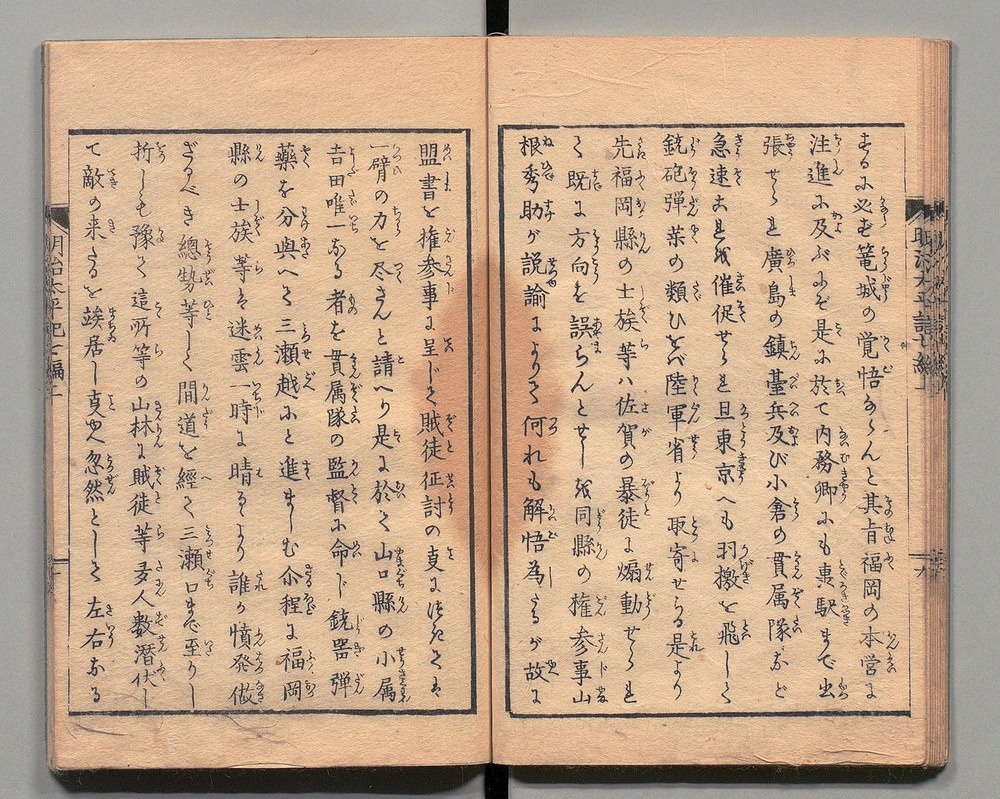 まるに必ず篭城の覚悟ならんと其旨福岡の本営に
注進に及ぶにぞ是に於て内務卿にも裏駅まで出
張せられ廣島の鎮䑓兵及び小倉の貫属隊など
急速これを催促せられ且東京へも羽檄を飛して
銃砲弾薬の類ひをバ陸軍省より取寄せらる是より
先福岡縣の士族等ハ佐賀の暴徒に煽動せられ
て既に方向を誤らんとせしを同縣の権参事山
根秀助が説諭によりて何れも解悟為たるが故に
盟書を権参事に呈じて賊徒征討の事に
一臂の力を尽さんと請へり是に於て山口縣の小属
吉田唯一なる者を貫属隊の監督に命じ銃器弾
藥を分與へて三瀬越にと進ましむ尒程に福岡
縣の士族等は迷雲一時に晴るより誰か憤発做
ざるべき總勢等しく間道を經て三瀬口まで至りし
折しも豫て這所等の山林に賊徒等多人数潜伏し
て敵の来るを竢居し事故忽然として左右なる
明治太平記七編上